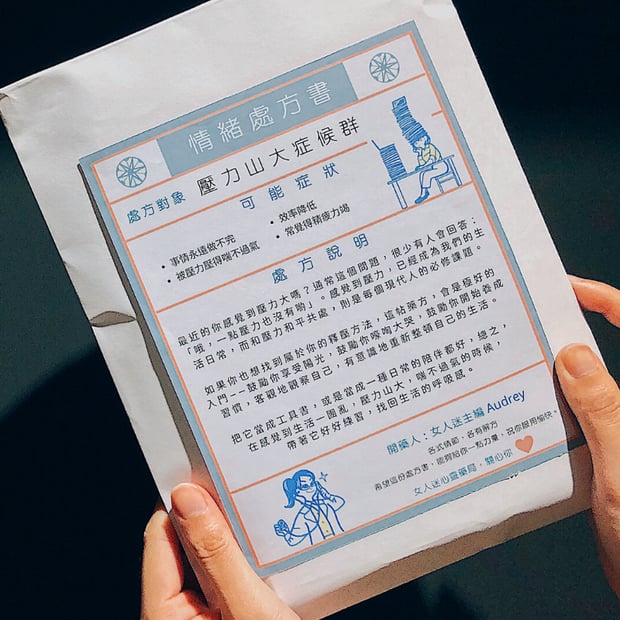 情緒處方書
處方對象 壓力山大症候群
可能症狀
• 事情永遠做不完
• 被壓力壓得喘不過氣
• 效率降低
• 常覺得精疲力竭
處方說明
最近的你感覺到壓力大嗎？通常這個問題，很少有人會回答：
「哦，一點壓力也沒有喲」。感覺到壓力，已經成為我們的生
活日常，而和壓力和平共處，則是每個現代人的必修課題。
如果你也想找到屬於你的釋壓方法，這帖藥方，會是極好的
入門——鼓勵你享受陽光，鼓勵你嚎啕大哭，鼓勵你開始養成
習慣，客觀地觀察自己，有意識地重新整頓自己的生活。
把它當成工具書，或是當成一種日常的陪伴都好，總之，
在感覺到生活一團亂，壓力山大，喘不過氣的時候，
帶著它好好練習，找回生活的呼吸感。
開藥人：女人迷主編 Audrey
各式情節，各有解方
希望這份處方書，能夠給你一點力量，祝你服用愉快。
女人迷心靈藥局，關心你